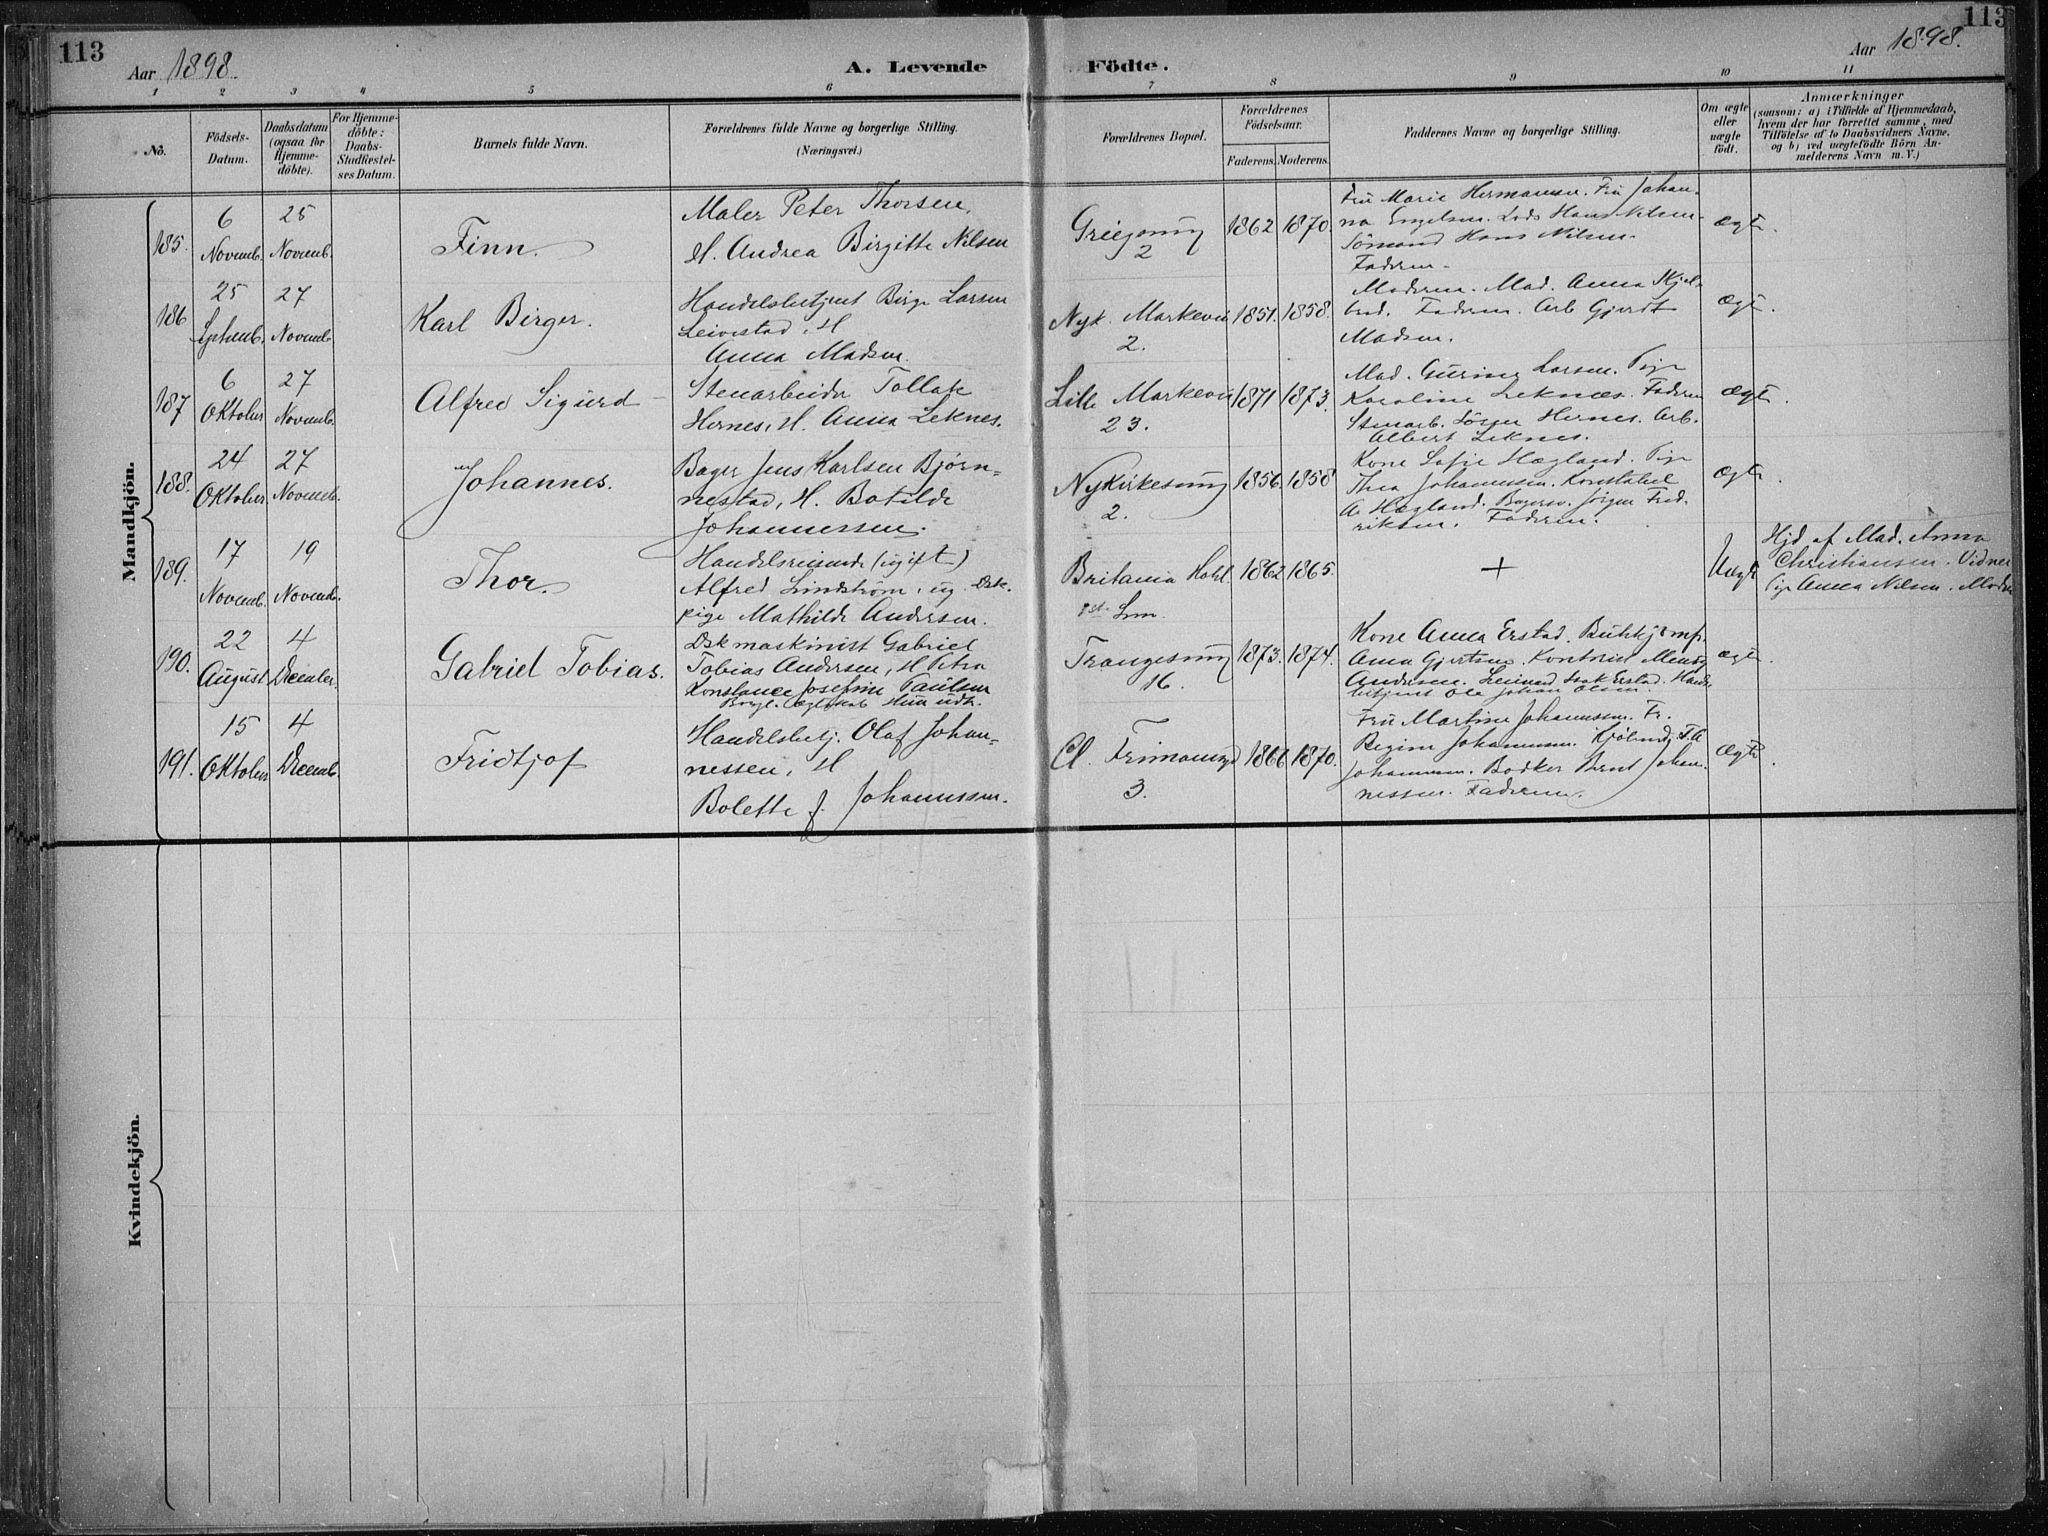 113
Aar 1898.
A. Levende Födte.
Aar 1898.
113
1 2 3 4 5 6 7 8 9 10 11
No.
Födsels-
Datum.
Daabsdatum
(ogsaa for
Hjemme-
döbte).
For Hjemme-
döbte:
Daabs-
Stadfæstel-
ses Datum.
Barnets fulde Navn.
Forældrenes fulde Navne og borgerlige Stilling.
(Næringsvei.)
Forældrenes Bopæl.
Forældrenes
Födselsaar.
Faderens. Moderens.
Faddernes Navne og borgerlige Stilling.
Om ægte
eller
uægte
födt.
Anmærkninger
(saasom: a) i Tilfælde af Hjemmedaab,
hvem der har forrettet samme, med
Tilföielse af to Daabsvidners Navne,
og b) ved uægtefödte Börn An-
melderens Navn m. V.)
Mandkjön.
185.
6
Novemb.
25
Novemb.
Finn.
Maler Peter Thorsen.
H. Andrea Birgitte Nilsen
2
1862 1870.
Fru Marie Hermansen. Fru Johan-
na Engelsen. Lods Hans Nilsen.
Sömand Hans Nilsen.
Faderen.
ægte.
186
25
Septemb.
27
Novemb
Karl Birger.
Handelsbetjent Birge Larsen
Leivestad. H
Anna Madsen.
Nyk. Markevei
2.
1851. 1858.
Moderen. Mad. Anna
Faderen. Arb Gjerdt
Madsen.
ægte.
187
6
Oktober
27
Novemb.
Alfred Sigurd
Stenarbeider Tollak
Hernes, H. Anna Leknes.
Lille Markevei
23.
1871 1873.
Mad. Gurine Larsen. Pige
Karoline Leknæs. Faderen
Stenarb. Hernes. Arb.
Albert Leknes.
ægte.
188.
24
Oktober
27
Novemb.
Johannes.
Bager Jens Karlsen Bjørn-
nestad, H. Botilde
Johannessen.
Nykirkesmug
2.
1856. 1858
Kone Sofie Hægland. Pige
Thea Johannessen. Konstabel
A Hægland. Bagersv. Jörgen Fred-
riksen. Faderen.
ægte.
189.
17
Novemb.
19
Novemb.
Thor.
Handelsreisende (ugift)
Alfred Lindström, ug. Dsk.
pige Mathilde Andersen.
Britania Hotel
1862 1865.
+
Uægte
Hjd af Mad. Anna
Christiansen. Vidner
Pige Anna Nilsen. Moder
190.
22
August
4
December.
Gabriel Tobias.
Dsk maskinist Gabriel
Tobias Andersen, H Petra
Konstance Josefine Paulsen
Trangesmug
16.
1873. 1874.
Kone Anna Erstad.
Anna Gjertsen. Kontorist
Andersen. Erstad. Handels
betjent Ole Johan Olsen.
ægte.
191.
15
Oktober
4
Decemb.
Fridtjof
Handelsbetj. Olaf Johan-
nessen, H
Bolette f. Johannssen.
Cl.
3.
1866 1870.
Fru Martine Johannssen. Fr.
Regine Johannssen.
Johannssen. Bödker Bernt Johan-
nessen. Faderen.
Ægte.
Kvindekjön.